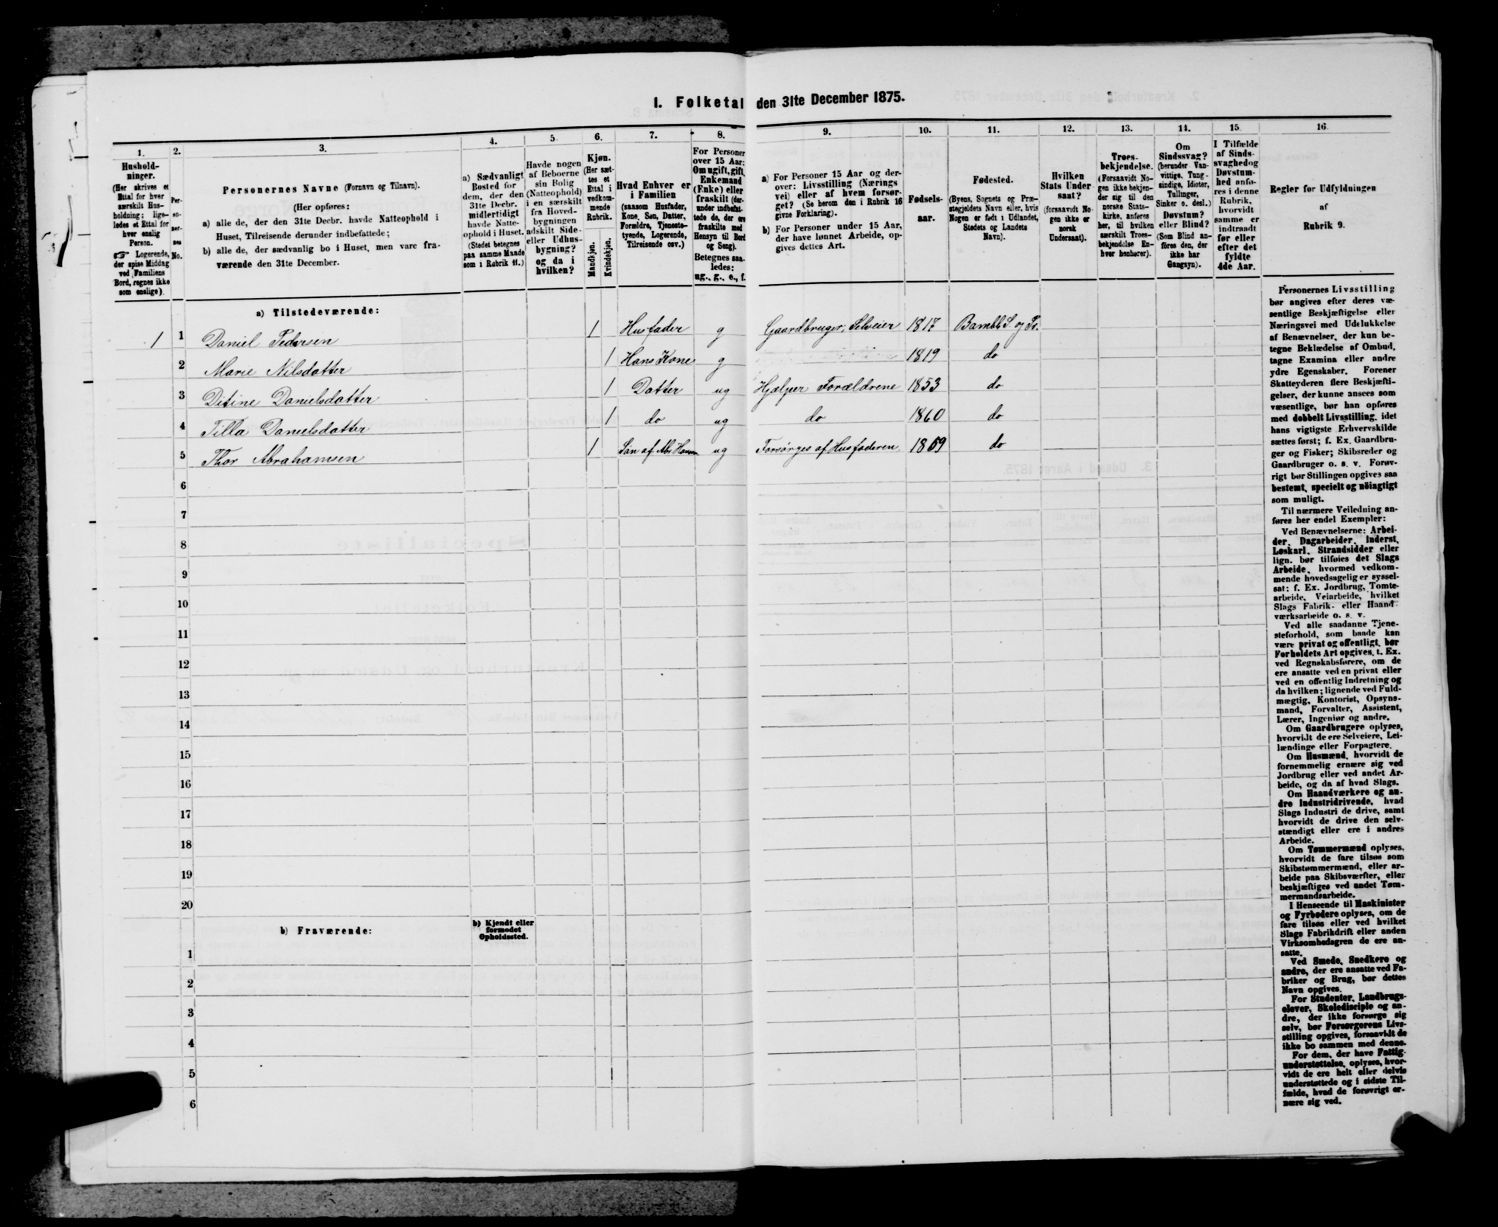 I. Folketal den 31te December 1875.
1. 2. 3. 4. 5. 6. 7. 8. 9. 10. 11. 12. 13. 14. 15. 16.
Hushold-
ninger.
(Her skrives et
Ettal for hver
særskilt Hus-
holdning; lige-
ledes et Ettal for
hver enslig
Person.
☞ Logerende,
der spise Middag
ved Familiens
Bord, regnes ikke
som enslige).
Per-
so-
ner-
nes
No.
Personernes Navne (Fornavn og Tilnavn).
(Her opføres:
a) alle de, der den 31te Decbr. havde Natteophold i
Huset, Tilreisende derunder indbefattede;
b) alle de, der sædvanlig bo i Huset, men vare fra-
værende den 31te December.
a) Sædvanligt
Bosted for
dem, der den
31te Decbr.
midlertidigt
havde Natte-
ophold i Huset.
(Stedet betegnes
paa samme Maade
som i Rubrik 11.)
Havde nogen
af Beboerne
sin Bolig
(Natteophold)
i en særskilt
fra Hoved-
bygningen
adskilt Side-
eller Udhus-
bygning?
og da i
hvilken?
Kjøn.
(Her sæt-
tes et
Ettal i
vedkom-
mende
Rubrik.
Mandkjøn.
Kvindekjøn.
Hvad Enhver er
i Familien
(saasom Husfader,
Kone, Søn, Datter,
Forældre, Tjeneste-
tyende, Logerende,
Tilreisende osv.)
For Personer
over 15 Aar:
Om ugift, gift,
Enkemand
(Enke) eller
fraskilt (der-
under indbefat-
tede de, der ere
fraskilte med
Hensyn til Bord
og Seng).
Betegnes saa-
ledes:
ug., g., e., f.
a) For Personer 15 Aar og der-
over: Livsstilling (Nærings
vei) eller af hvem forsør-
get? (Se herom den i Rubrik 16
givne Forklaring).
b) For Personer under 15 Aar,
der have lønnet Arbeide, op-
gives dettes Art.
Fødsels-
aar.
Fødested.
(Byens, Sognets og Præ-
stegjeldets Navn eller, hvis
Nogen er født i Udlandet,
Stedets og Landets
Navn).
Hvilken
Stats Under
saat?
(forsaavidt No
gen ikke er
norsk
Undersaat).
Troes-
bekjendelse.
(Forsaavidt No-
gen ikke bekjen-
der sig til den
norske Stats-
kirke, anføres
her, til hvilken
særskilt Troes-
bekjendelse En-
hver henhører).
Om
Sindssvag?
(herunder Van-
vittige, Tung-
sindige, Idioter,
Tullinger,
Sinker o. desl.)
Døvstum?
eller Blind?
(Som Blind an-
føres den, der
ikke har
Gangsyn).
I Tilfælde
af Sinds-
svaghedog
Døvstum-
hed anfø-
res i denne
Rubrik,
hvorvidt
samme er
indtraadt
før eller
efter det
fyldte
4de Aar.
Regler for Udfyldningen
af
Rubrik 9.
a) Tilstedeværende:
1 1 Daniel Pedersen 1 Husfader g Gaardbruger, Selveier 1817 Bamble S. og Pr.
2 Marie Nilsdatter 1 Hans Kone g 1819 do
3 Ditine Danielsdatter 1 Datter ug Hjælper Forældrene 1853 do
4 Tilla Danielsdatter 1 do ug do 1860 do
5 Thor Abrahamsen 1 Søn af Abr Hansen ug Forsørges af Husfaderen 1869 do
6
7
8
9
10
11
12
13
14
15
16
17
18
19
20
b) Fraværende:
b) Kjendt eller
formodet
Opholdssted.
1
2
3
4
5
6
Personernes Livsstilling
bør angives efter deres væ-
sentlige Beskjæftigelse eller
Næringsvei med Udelukkelse
af Benævnelser, der kun be-
tegne Beklædelse af Ombud,
tagne Examina eller andre
ydre Egenskaber. Forener
Skatteyderen flere Beskjæfti-
gelser, der kunne ansees som
væsentlige, bør han opføres
med dobbelt Livsstilling, idet
hans vigtigste Erhvervskilde
sættes først; f. Ex. Gaardbru-
ger og Fisker; Skibsreder og
Gaardbruger o. s. v. Forøv-
rigt bør Stillingen opgives saa
bestemt, specielt og nøiagtigt
som muligt.
Til nærmere Veiledning an-
føres her endel Exempler:
Ved Benævnelserne: Arbei-
der, Dagarbeider, Inderst,
Løskarl, Strandsidder eller
lign. bør tilføies det Slags
Arbeide, hvormed vedkom-
mende hovedsagelig er syssel-
sat; f. Ex. Jordbrug, Tomte-
arbeide, Veiarbeide, hvilket
Slags Fabrik- eller Haand-
værksarbeide o. s. v.
Ved alle saadanne Tjene-
steforhold, som baade kan
være privat og offentligt, bør
Forholdets Art opgives, t. Ex.
ved Regnskabsførere, om de
ere ansatte ved en privat eller
ved en offentlig Indretning og
da hvilken; lignende ved Fuld-
mægtig, Kontorist, Opsyns-
mand, Forvalter, Assistent,
Lærer, Ingeniør og andre.
Om Gaardbrugere oplyses,
hvorvidt de ere Selveiere, Lei-
lændinge eller Forpagtere.
Om Husmænd, hvorvidt de
fornemmelig ernære sig ved
Jordbrug eller ved andet Ar-
beide, og da af hvad Slags.
Om Haandværkere og an-
dre Industridrivende, hvad
Slags Industri de drive, samt
hvorvidt de drive den selv-
stændigt eller ere i andres
Arbeide.
Om Tømmermænd oplyses,
hvorvidt de fare tilsøs som
Skibstømmermænd, eller ar-
beide paa Skibsværfter, eller
beskjæftiges ved andet Tøm-
mermandsarbeide.
I Henseende til Maskinister
og Fyrbødere oplyses, om de
fare tilsøs eller ved hvilket
Slags Fabrikdrift eller anden
Virksomhedsgren de ere an-
satte.
Ved Smede, Snedkere og
andre, der ere ansatte ved Fa-
briker og Brug, bør dettes
Navn opgives.
For Studenter, Landbrugs-
elever, Skoledisciple og an-
dre, der ikke forsørge sig
selv, bør Forsørgerens Livs-
stilling opgives, forsaavidt de
ikke bo sammen med denne.
For dem, der have Fattig-
understøttelse, oplyses, hvor-
vidt de ere helt eller delvis
understøttede og i sidste Til-
fælde, hvad de forøvrigt er-
nære sig ved.